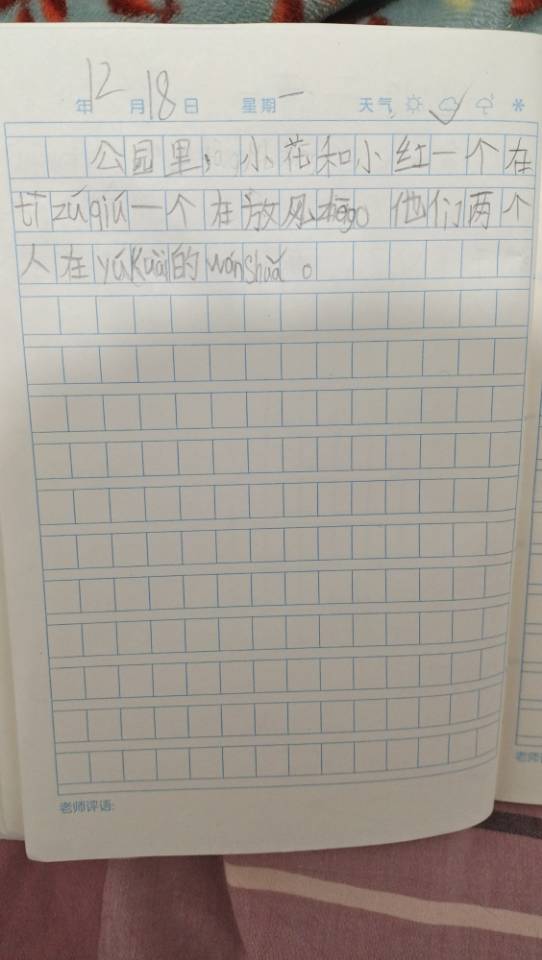 年 12 月 18 日 星期一 天气
公园里，小花和小红一个在
tī zú qiú 一个在放风 。他们两个
人在 yú kuài 的 wán shuǎ 。
老师评语:
老师评